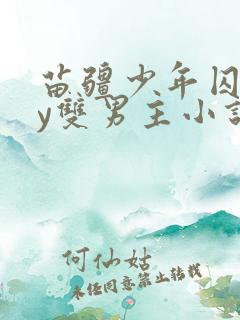 苗疆少年囚
y雙男主小說
何仙姑
未经同意禁止转载